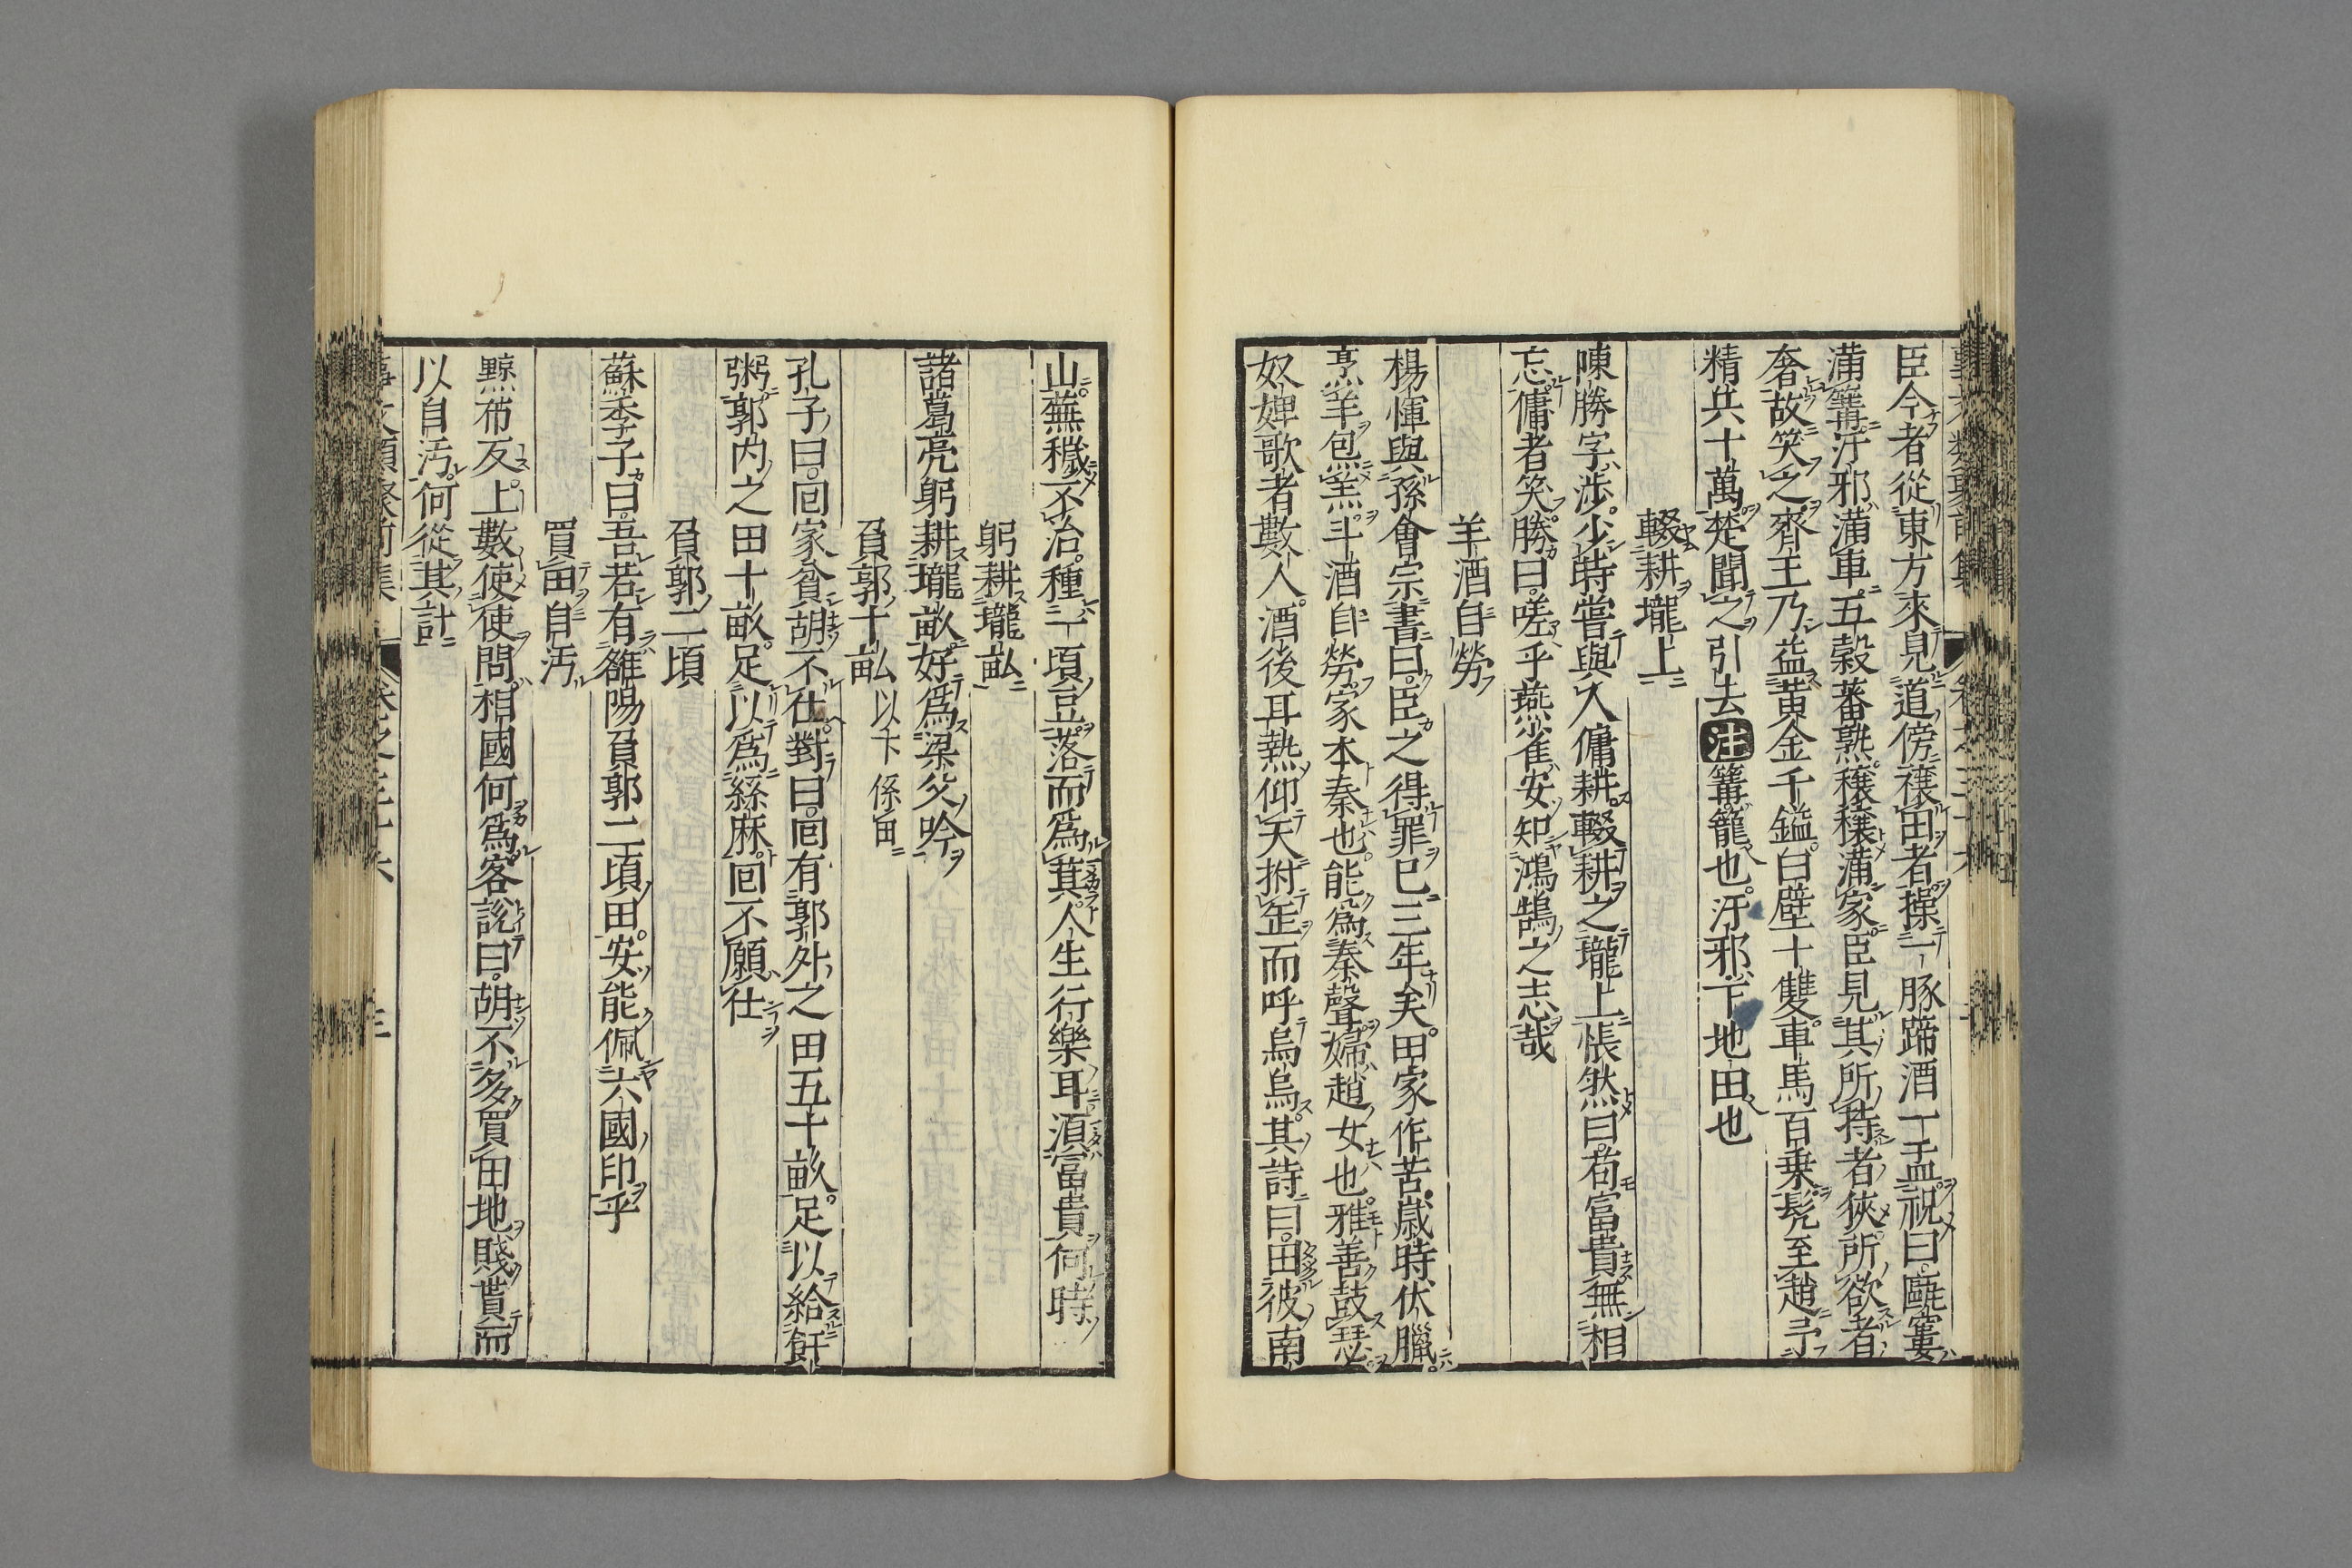 臣今者從東方來見道傍禳田者操一豚蹄酒一盂祝曰甌窶
滿篝汙邪滿車五穀蕃熟穰穰滿家臣見其所持者狹所欲者
奢故笑之齊王乃益黄金千鎰白璧十雙車馬百乗髡至趙予
精兵十萬楚聞之引去注篝籠也汙邪下地田也
輟耕壠上
陳勝字渉少時嘗與人傭耕輟耕之壠上悵然曰苟富貴無相
忘傭者笑勝曰嗟乎燕雀安知鴻鵠之志哉
羊酒自勞
楊惲與孫會宗書曰臣之得罪已三年矣田家作苦歳時伏臘
烹羊包羔斗酒自勞家本秦也能為秦聲婦趙女也雅善鼓瑟
奴婢歌者數人酒後耳熱仰天拊缶而呼烏烏其詩曰田彼南
山蕪穢不治種一頃豆落而爲萁人生行樂耳須富貴何時
躬耕壠畝
諸葛亮躬耕壠畝好爲梁父吟
負郭十畝 以下係田
孔子曰回家貧胡不仕對曰回有郭外之田五十畝足以給飦
粥郭内之田十畝足以爲絲麻回不願仕
負郭二頃
蘇季子曰吾若有雒陽負郭二頃田安能佩六國印乎
買田自汚
黥布反上數使使問相國何爲客說曰胡不多買田地賤貰而
以自汚何從其計
事文類聚前集 卷之三十六